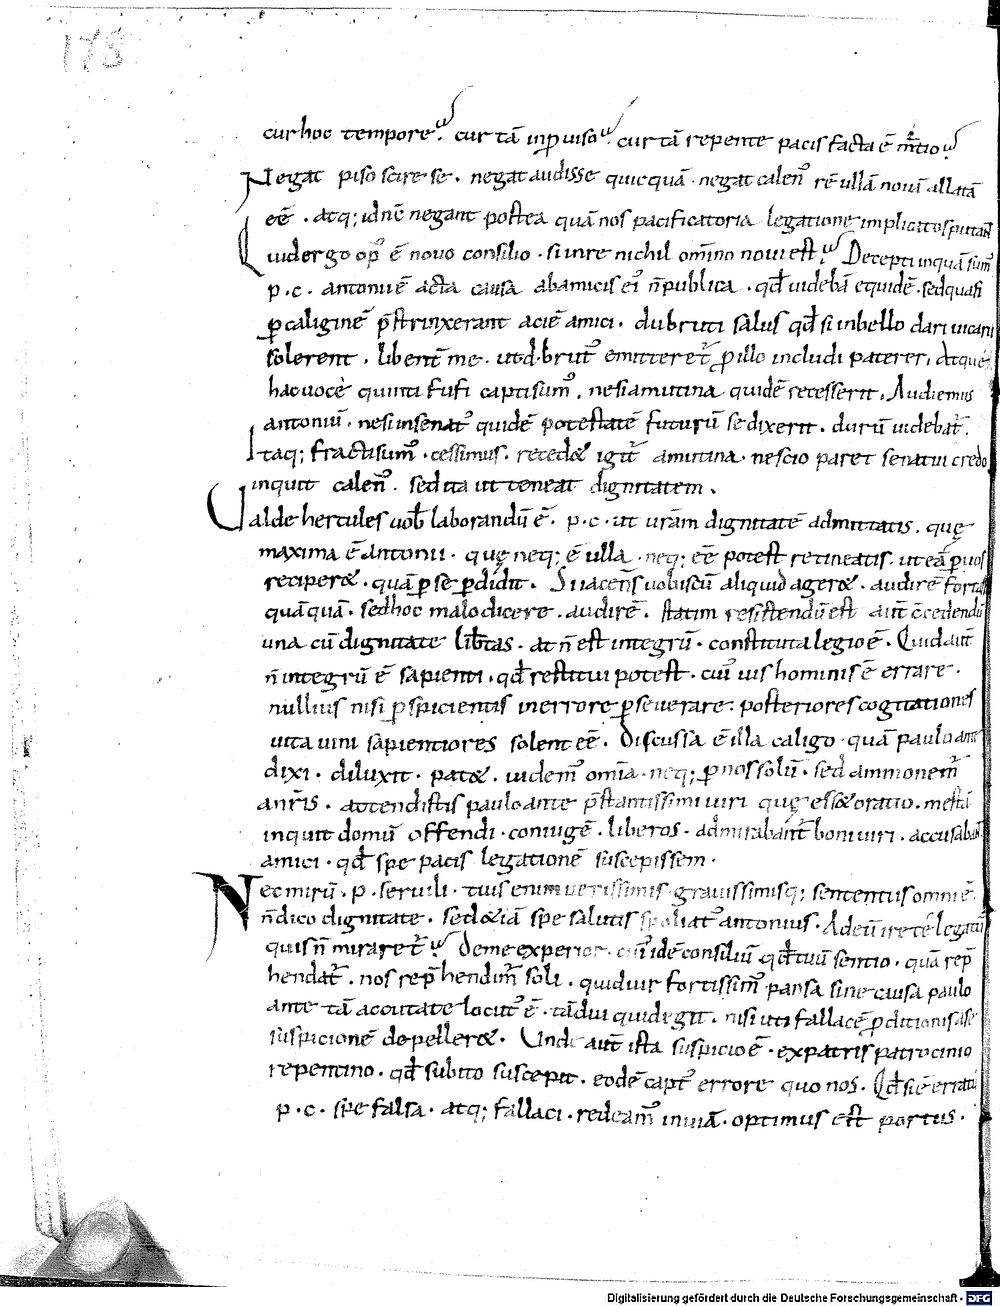 178
cur hoc tempore? cur tā inꝓuiso? cur tā repente pacis facta ē m̄tio?
Negat piso scire se. negat audisse quicquā. negat calen᷒ rē ullā nouā allatā
eē. atq; id nc̄ negant postea quā nos pacificatoria legatione implicitos putan̄t
Quid ergo op᷒ ē nouo consilio. si in re nichil om̄ino noui est? Decepti inquā sum᷒
p.c. antonii ē acta causa ab amicis ei᷒ n̄ publica. qđ uidebā equidē. sed quasi
ꝑ caliginē p̄strinxerant aciē amici. d bruti salus qđ si in bello dari uicarii
solerent. libent̄ me. ut d. brut᷒ emitteret̄ ꝓ illo includi paterer. Atque
hac uoce quinti fufi capti sum᷒. ne si a mutina quidē recesserit. Audiemus
antoniū. ne si in senat᷒ quidē potestatē futurū se dixerit. durū uidebat̄.
Itaq; fracti sum᷒. cessimus. reced& igit̄ a mutina. nescio paret senatui credo
inquit calen᷒. sed ita ut teneat dignitatem.
Valde hercules uob̄ laborandū ē. p.c. ut urām dignitatē admittatis. quę
maxima ē. Antonii. quę neq; ē ulla. neq; eē potest retineatis. ut eā ꝑ uos
reciper&. quā ꝑ se ꝑdidit. Si iacens uobiscū aliquid ager&. audirē fortas
quāquā. sed hoc malo dicere. audirē. statim resistendū est aut c̄cedendū
una cū dignitate lib̄tas. at n̄ est integrū. constituta legio ē. Quid aut̄
n̄ integrū ē sapienti. qđ restitui potest. cui᷒ uis hominis ē errare.
nullius nisi ꝑspicientis in errore ꝑseuerare. posteriores cogitationes
ut a uini sapientiores solent eē. Discussa ē illa caligo. quā paulo ante
dixi. diluxit. pat&. uidem᷒ om̄ia. neq; ꝑ nos solū. sed ammonem᷒
a nr̄is. attendistis paulo ante p̄stantissimi uiri quę ess& oratio. mestā
inquit domū offendi. coniugē. liberos. admirabant̄ boni uiri. accusaban̄t
amici. qđ spe pacis legationē suscepissem.
Nec mirū. p. seruili. tuis enim uerissimis grauissimisq; sententiis omni ē.
n̄ dico dignitate. sed &iā spe salutis spoliat᷒ antonius. Ad eū ire te legatū
quis n̄ miraret̄? De me experior. cui᷒ idē consiliū qđ tuū sentio. quā rep̄
hendat̄. nos rep̄hendim̄ soli. quid uir fortissim᷒ pansa sine causa paulo
ante tā accutate locut᷒ ē. tā diu quid egit. nisi uti fallacē ꝓditionis a se
suspicionē depeller&. Unde aut̄ ista suspicio ē. ex patris patrocinio
repentino. qđ subito suscepit. eodē capt᷒ errore quo nos. Qđ si ē erratū
p.c. spe falsa. atq; fallaci. redeam᷒ in uiā. optimus est portus.
Digitalisierung gefördert durch die Deutsche Forschungsgemeinschaft - DFG